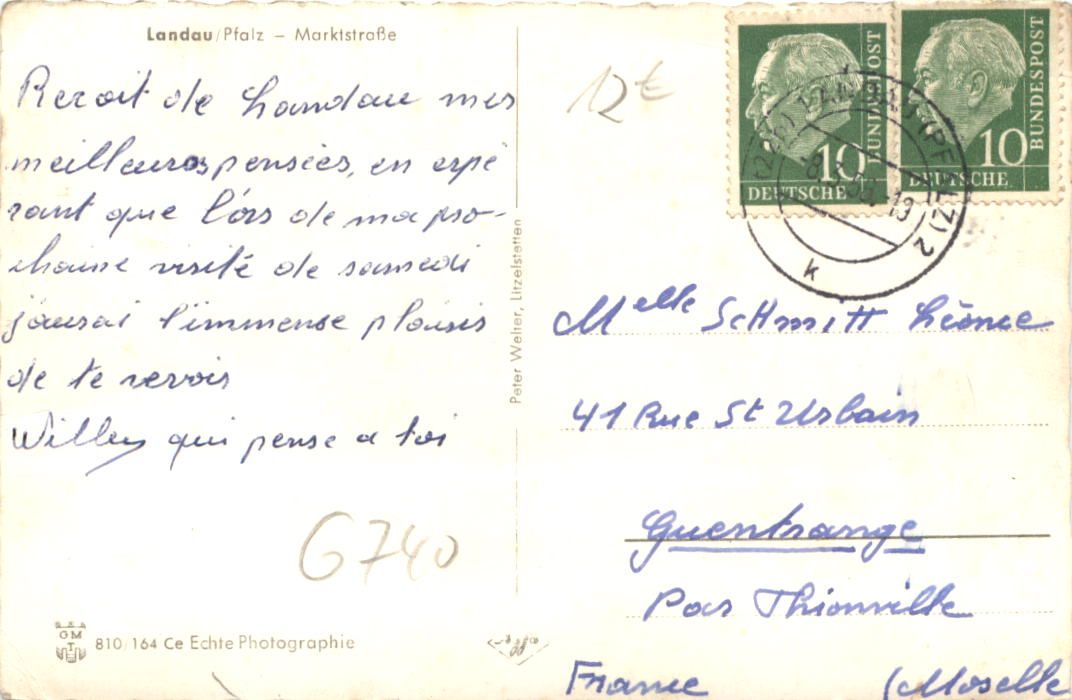 Landau/Pfalz – Marktstraße
Reçoit de Landau mes
meilleures pensées, en espé
rant que lórs de ma pro-
chaine visité de samedi
j'aurai l'immense plaisir
de te revoir
Willy qui pense a toi
G740
GM
810/164 Ce Echte Photographie
Peter Welter, Litzelstetten
12€
DEUTSCHE BUNDESPOST 10
DEUTSCHE BUNDESPOST 10
LANDAU (PFALZ) 2
k
Melle ScHmitt Léonce
41 Rue St Urbain
Guentrange
Par Thionville
France (Moselle